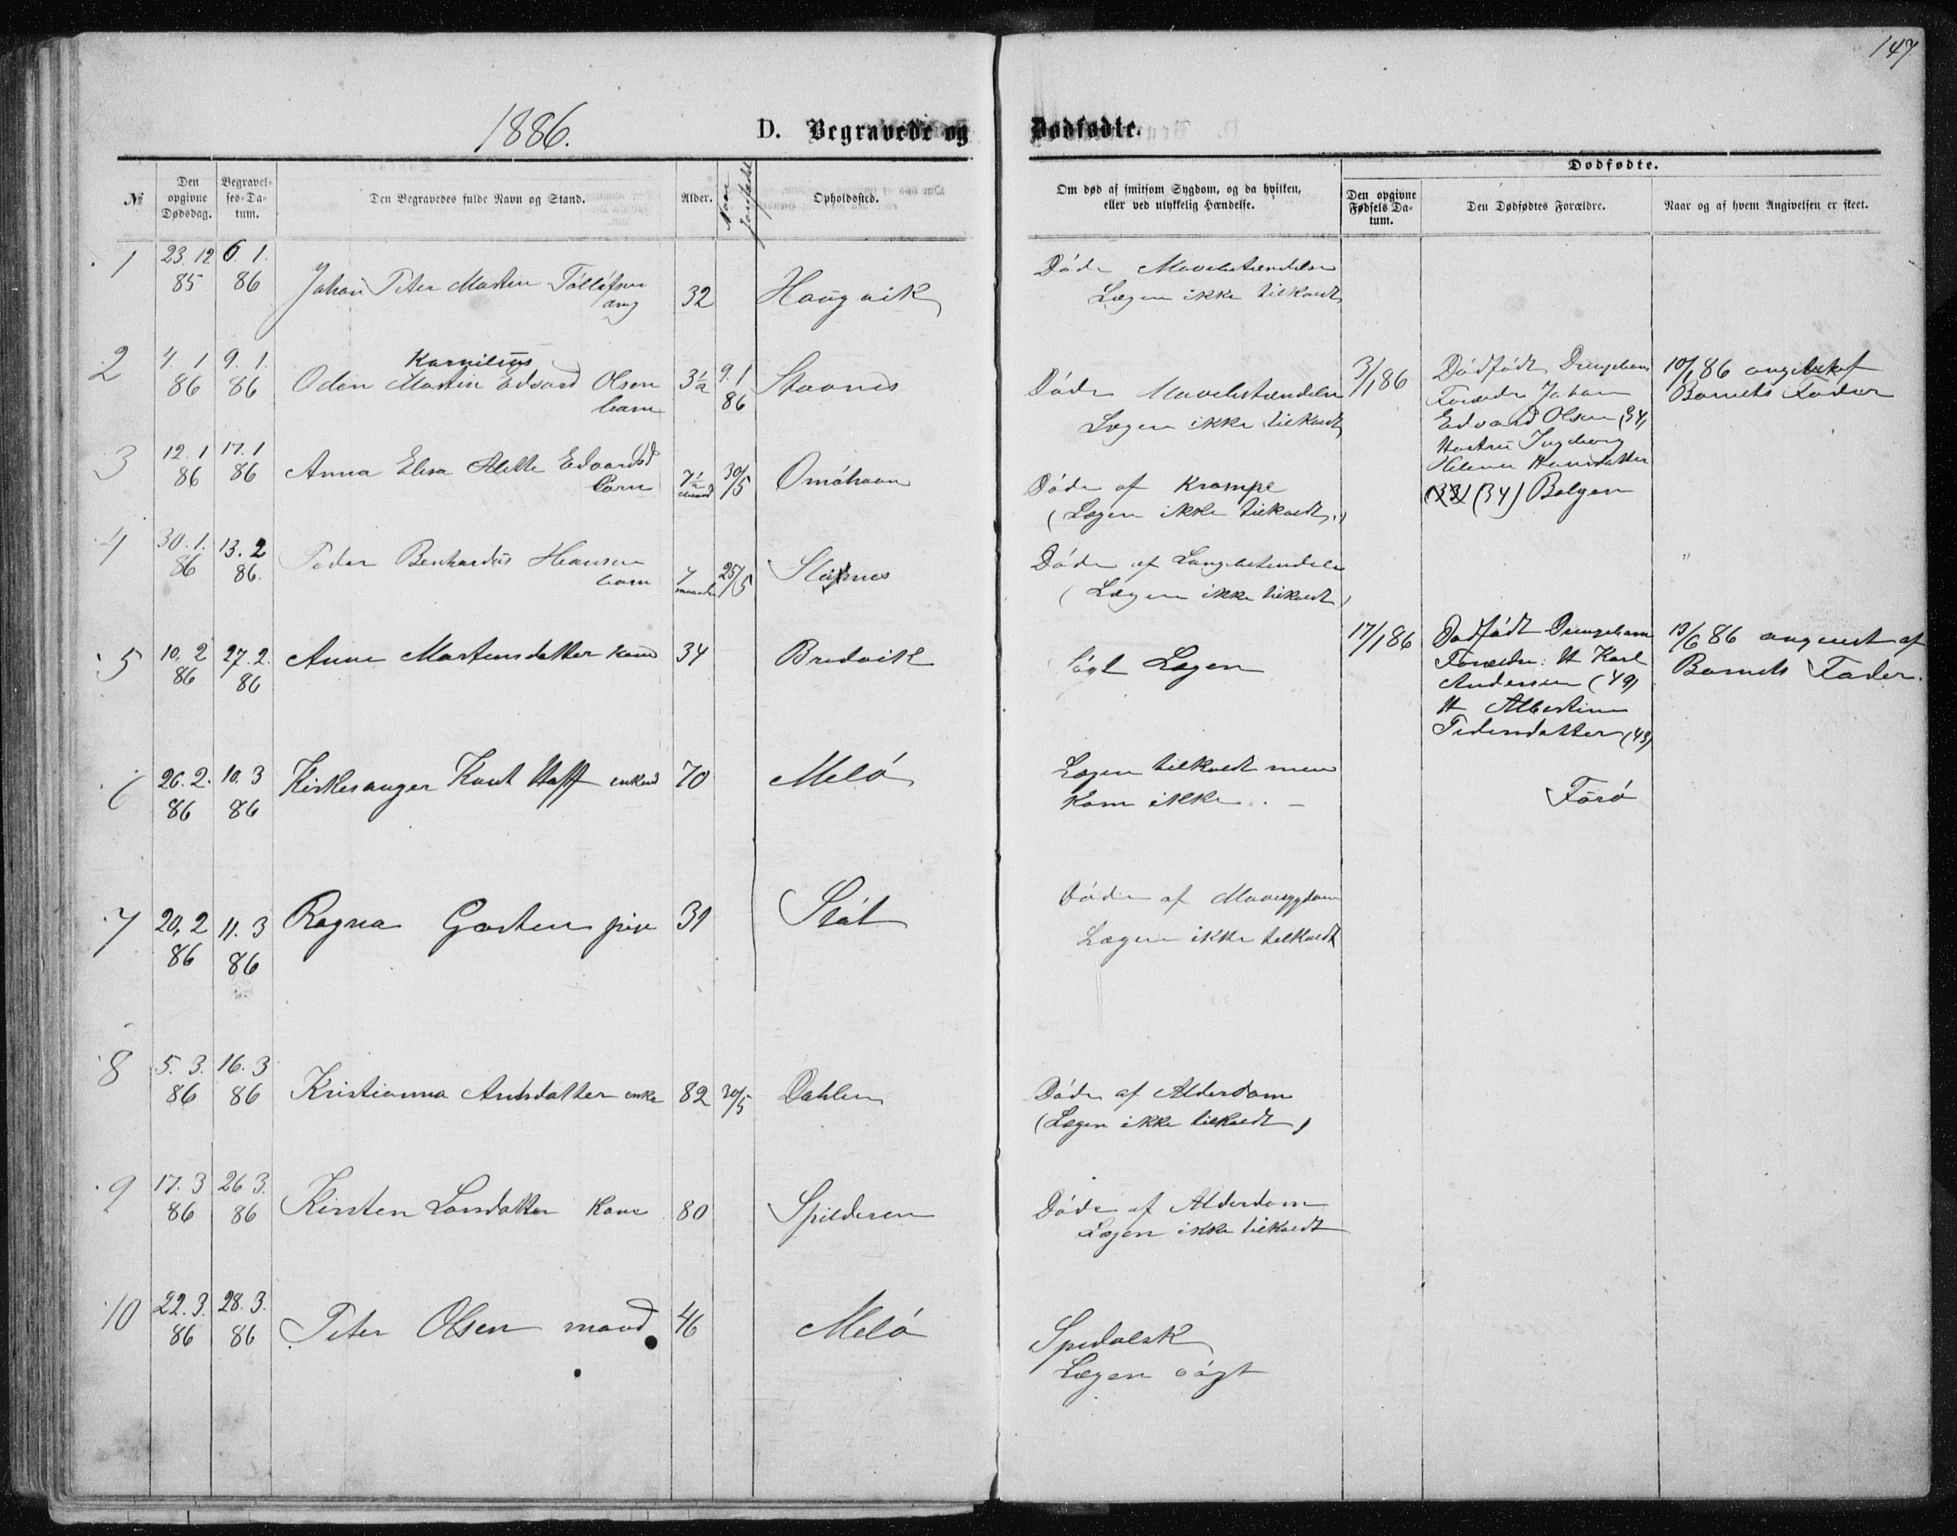 147
1886.
D. Begravede og Dødfødte.
№
Den opgivne Dødsdag.
Begravelses-Datum.
Den Begravedes fulde Navn og Stand.
Alder.
Naar jordfæstet
Opholdssted.
Om død af smitsom Sygdom, og da hvilken, eller ved ulykkelig Hændelse.
Dødfødte.
Den opgivne Fødsels Datum.
Den Dødfødtes Forældre.
Naar og af hvem Angivelsen er skeet.
1 23.12 85 6.1. 86 Johan Peter Martin Tølløfsen ung 32 Haugvik
Døde Mavebetændelse
Lægen ikke tilkaldt
2 4.1 86 9.1. 86 Odin Kornilius Martin Edvard Olsen barn 3½ 9.1 86 Stavnes
Døde Mavebetændelse
Lægen ikke tilkaldt
3/1 86
Dødfødt Drengebarn
Forældre Johan
Edvard Olsen (34)
Hustru Ingeborg
Helena Hansdatter
(34) Bolgen
10/1 86 angivet af
Barnets Fader
3 12.1 86 17.1 86 Anna Elisa Alette Edvardsd barn 7½ Maaned 30/5 Omøhavn
Døde af Krampe
(Lægen ikke tilkaldt.)
4 30.1. 86 13.2 86. Peder Benhardus Hansen barn 7 maaneder 25/5
Døde af Lungebetendelse
(Lægen ikke tilkaldt)
5 10.2 86 27.2. 86 Anne Martensdatter Kone 34 Bredvik
Søgt Lægen
17/1 86
Dødfødt Drengebarn
Forældre: H Karl
Andersen (49)
H Albertine
Pedersdatter (43)
Førø
13/6 86 angivet af
Barnets Fader.
6 26.2. 86 10.3 86 Kirkesanger Knut Hoff enkem 70 Melø
Lægen tilkaldt men
kom ikke.
7 20.2 86 11.3 86 Ragna Garten pige 31 Støt
Døde af Mavesygdom
Lægen ikke tilkaldt
8 5.3. 86 16.3 86 Kristianna Andsdatter enke 82 30/5 Dahlen
Døde af Alderdom
(Lægen ikke tilkaldt)
9 17.3 86 26.3. 86 Kirsten Larsdatter Kone 80 Spilderen
Døde af Alderdom
Lægen ikke tilkaldt
10 22.3. 86 28.3. 86 Peter Olsen mand 46 Melø
Spedalsk
Lægen søgt